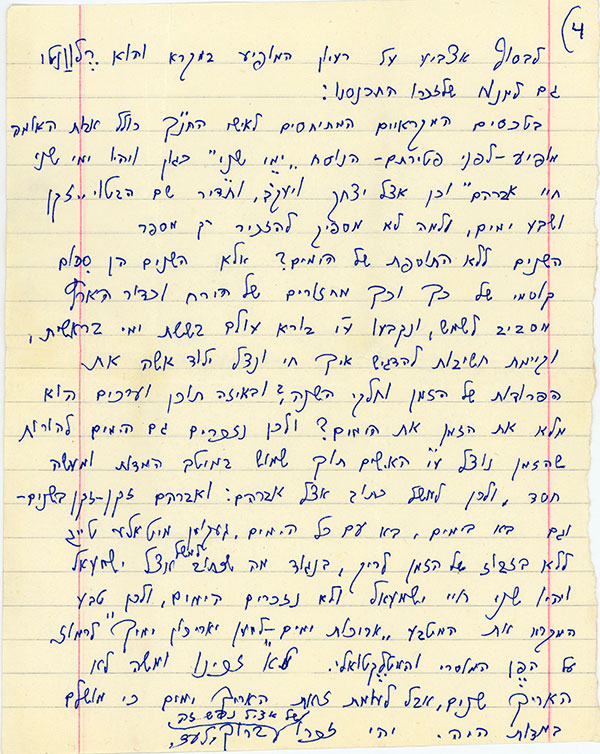 (4
לבסוף אצביע על רעיון המופיע במקרא והוא רלוונטי
גם למנוח שלזכרו התכנסנו:
בטכסים המקראיים המתיחסים לאישי התנ"ך כולל אבות האומה
מופיע -לפני פטירתם- הנוסח "ימי שני" כגון ויהיו ימי שני
חיי אברהם" וכן אצל יצחק ויעקב, ותדיר שם הבטוי "זקן
ושבע ימים, ולמה לא מספיק להזכיר רק מספר
השנים ללא התוספת של הימים? אלא השנים הן סכום
קוסמי של כך וכך מחזורים של הירח וכדור הארץ
מסביב לשמש, ונקבעו ע"י בורא עולם בששת ימי בראשית,
וקיימת חשיבות להדגיש איך חי ונצל ילוד אשה את
הפרודות של הזמן וחלקי השנה, ובאיזה תוכן וערכים הוא
מלא את הזמן את הימים? ולכן נזכרים גם הימים להורות
שהזמן נוצל ע"י האישים תוך שמוש במיטב המדות ומעשה
חסד, ולכן למשל כתוב אצל אברהם: ואברהם זקן-זקן בשנים-
וגם בא בימים, בא עם כל הימים,
ללא בזבוז של הזמן לריק, בנגוד מה שכתוב למשל אצל ישמעאל
ויהיו שני חיי ישמעאל ולא נזכרים הימים, ולכן טבע
המקרא את המטבע "ארוכות ימים-למען יאריכון ימיך" לרמוז
על הפן המוסרי והאינטלקטואלי. ומשה לא
האריך שנים, אבל לעומת זאת האריך ימים כי מושלם
במדות היה. יהי זכרו של אציל נפש זה